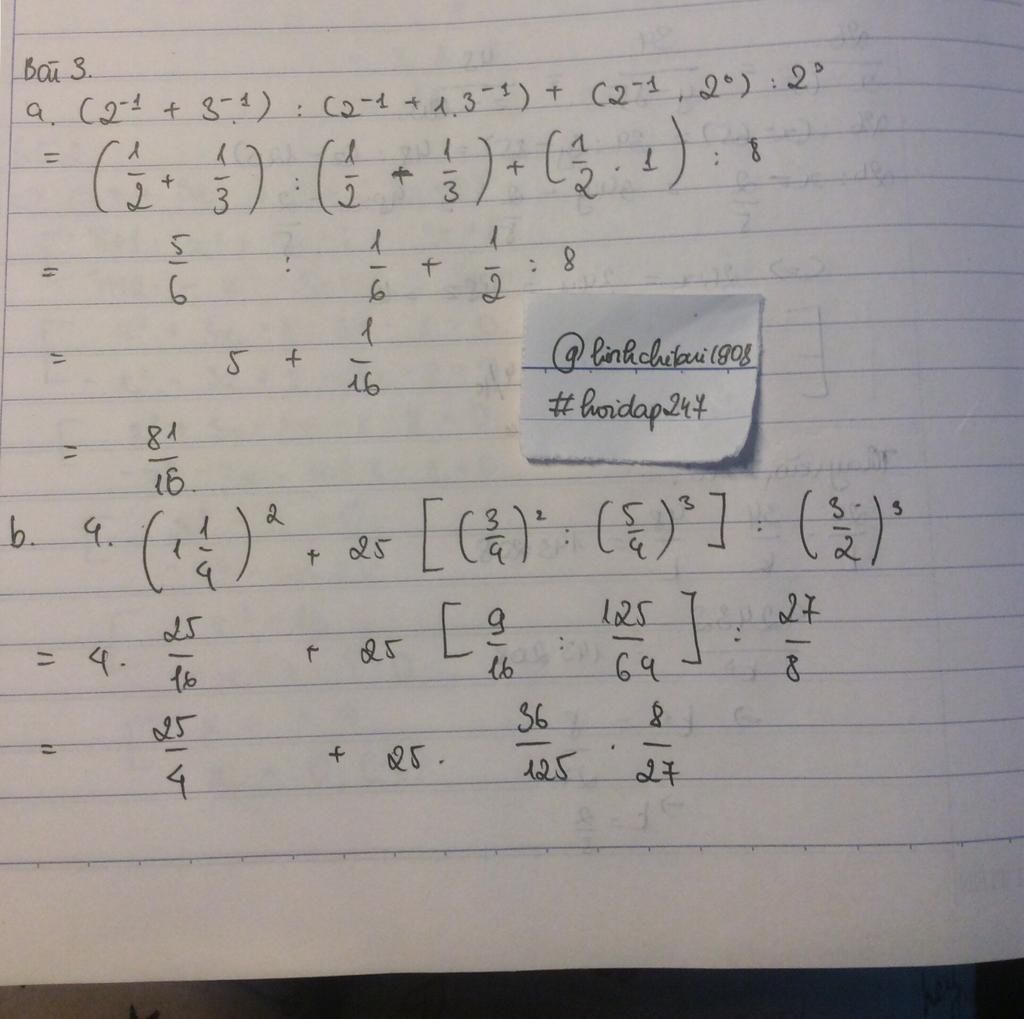 Bài 3.
a. (2⁻¹ + 3⁻¹) : (2⁻¹ + 1.3⁻¹) + (2⁻¹ . 2⁰) : 2³
= (1/2 + 1/3) : (1/2 + 1/3) + (1/2 . 1) : 8
= 5/6 : 1/6 + 1/2 : 8
= 5 + 1/16
= 81/16
@linhchitari1808
#hoidap247
b. 4. (1 1/4)² + 25 [(3/4)² : (5/4)³] : (3/2)³
= 4. 25/16 + 25 [9/16 : 125/64] : 27/8
= 25/4 + 25. 36/125 . 8/27